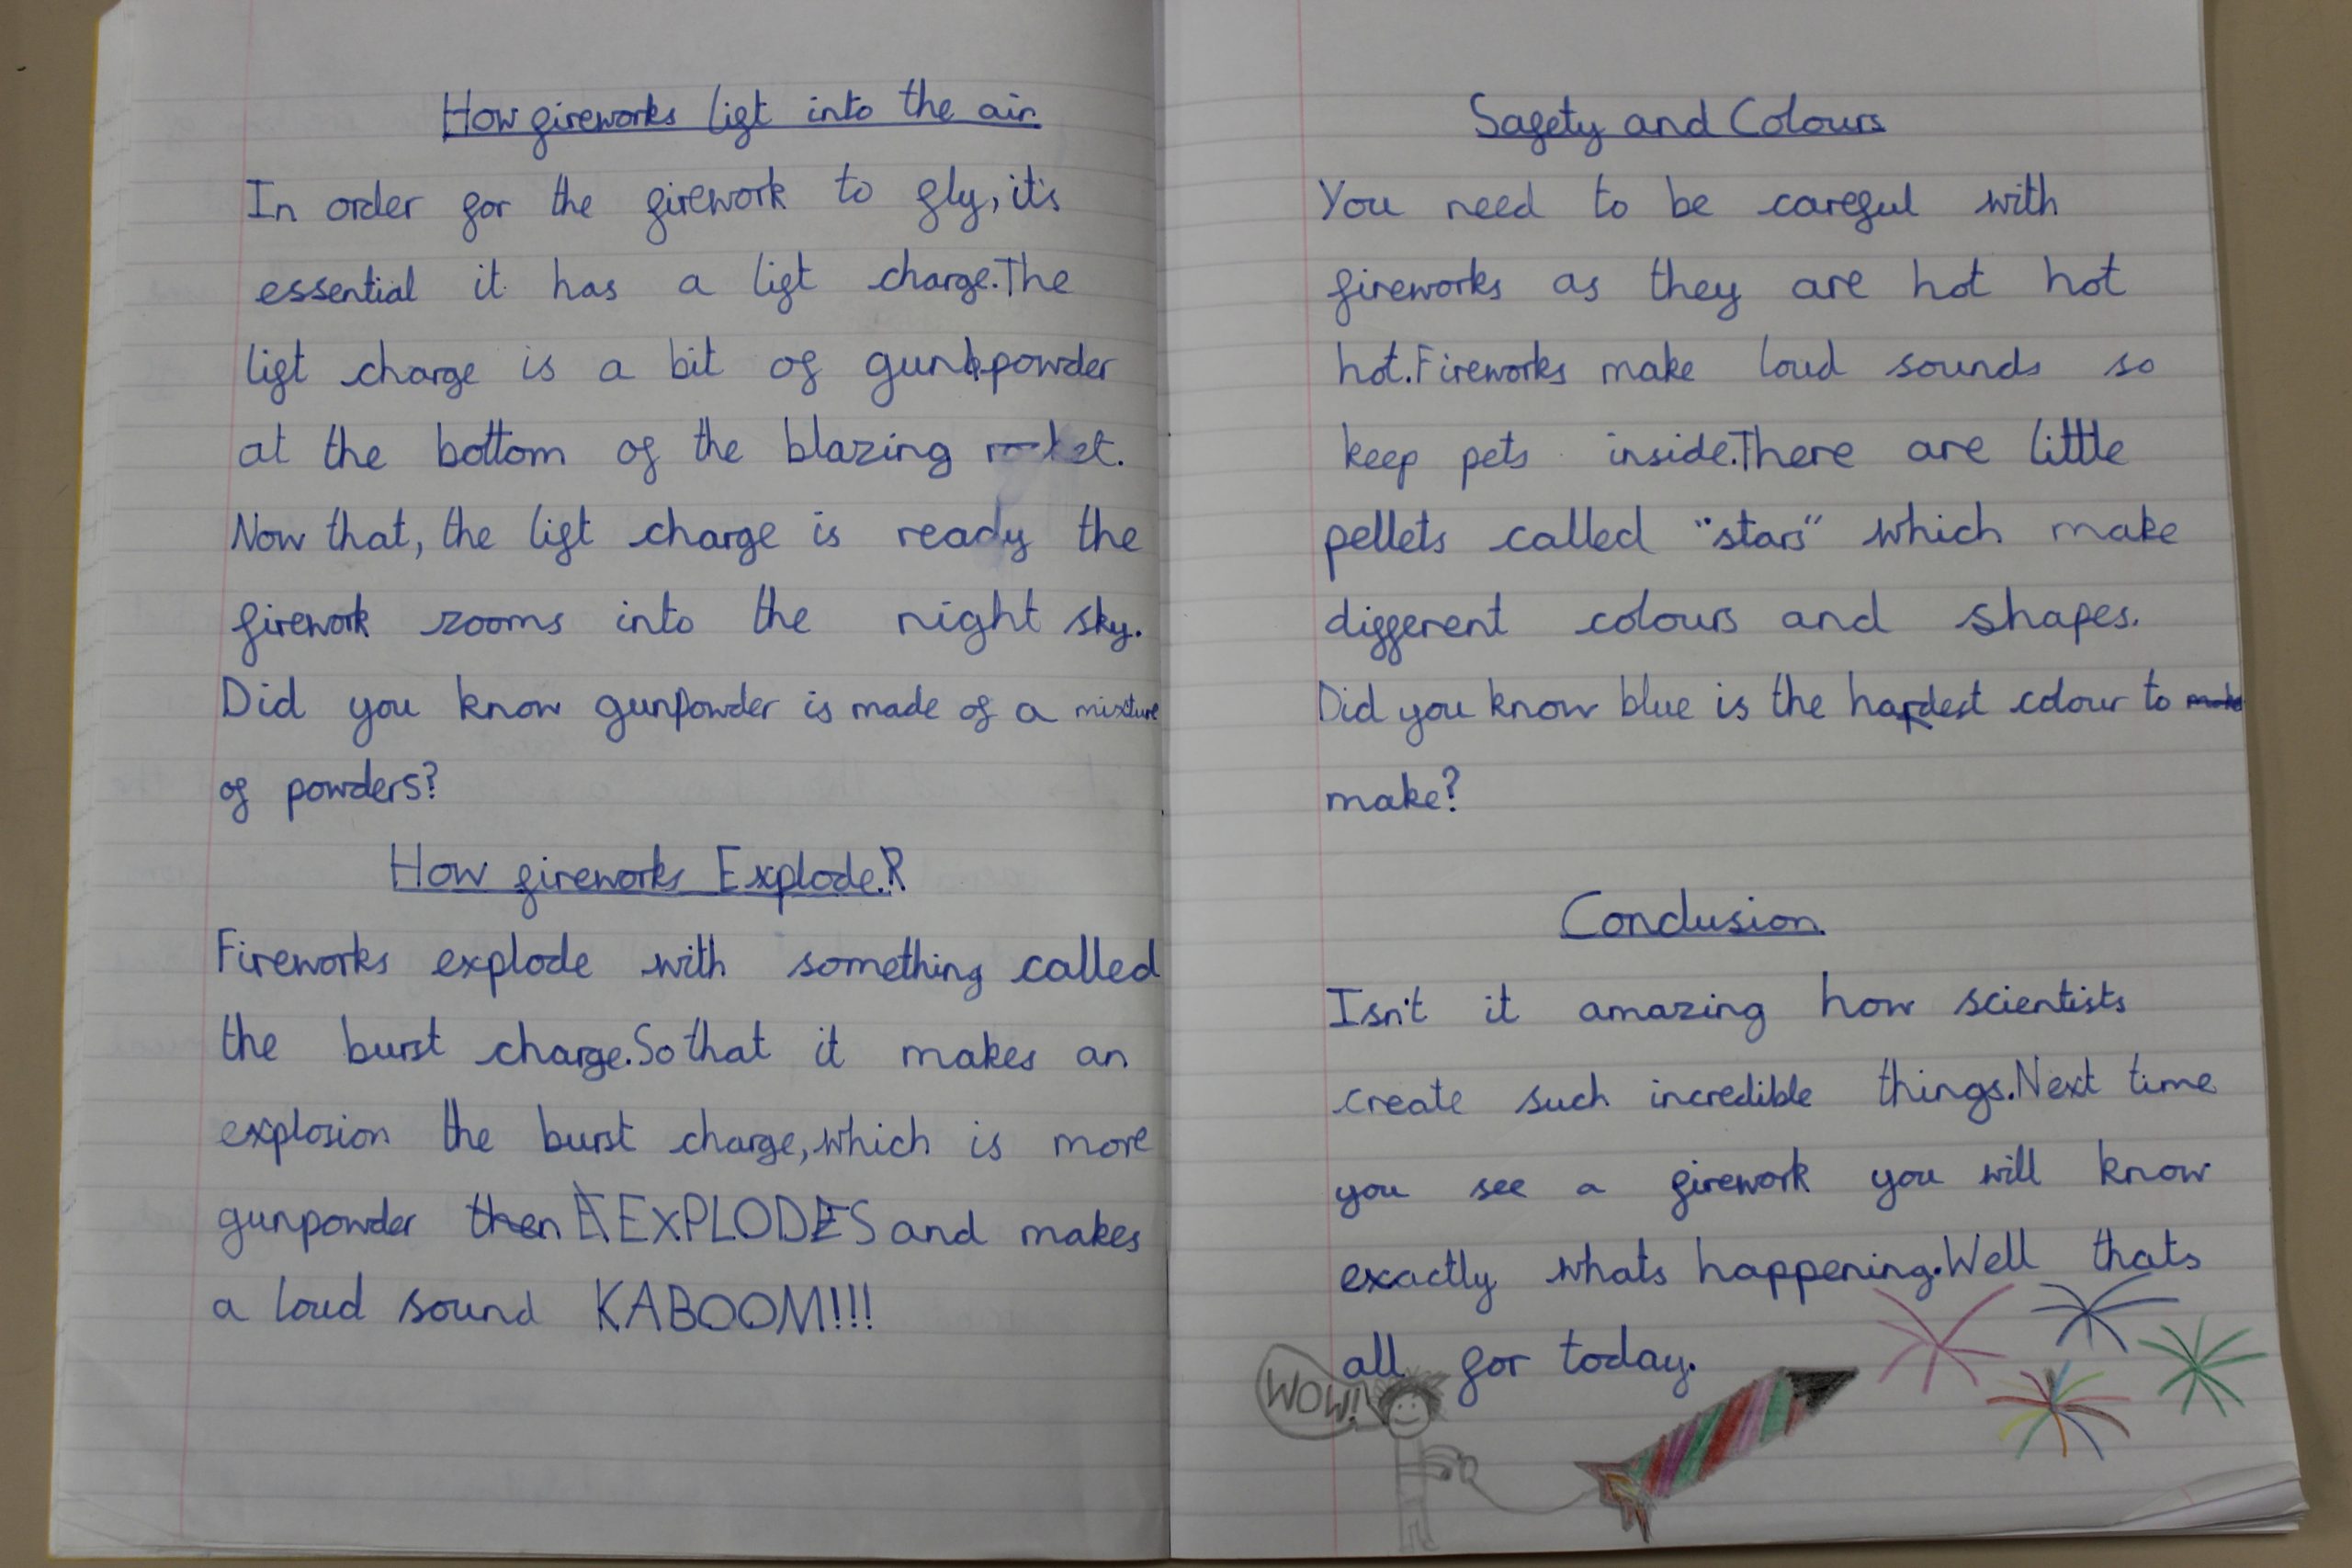 How fireworks lift into the air
In order for the firework to fly, it's
essential it has a lift charge. The
lift charge is a bit of gunpowder
at the bottom of the blazing rocket.
Now that, the lift charge is ready the
firework zooms into the night sky.
Did you know gunpowder is made of a mixture
of powders?
How fireworks Explode?
Fireworks explode with something called
the burst charge. So that it makes an
explosion the burst charge, which is more
gunpowder then EXPLODES and makes
a loud sound KABOOM!!!
Safety and Colours
You need to be careful with
fireworks as they are hot hot
hot. Fireworks make loud sounds so
keep pets inside. There are little
pellets called "stars" which make
different colours and shapes.
Did you know blue is the hardest colour to make
make?
Conclusion
Isn't it amazing how scientists
create such incredible things. Next time
you see a firework you will know
exactly whats happening. Well thats
all for today.
WOW!